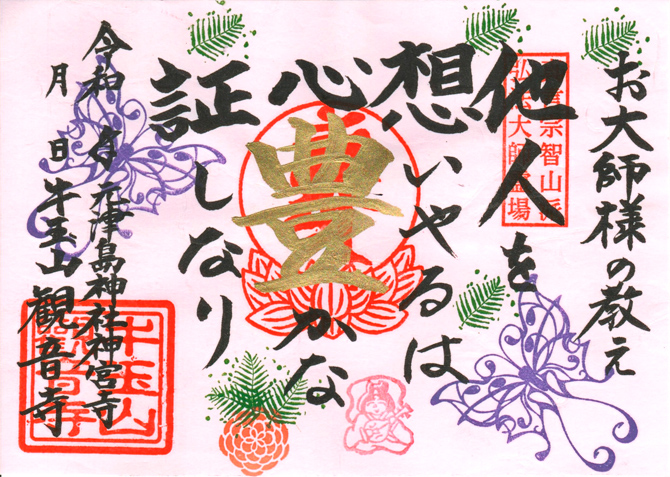 お大師様の教え
真言宗智山派
弘法大師霊場
他人を
想いやるは
心豊かな
証しなり
令和 年 元津島神社神宮寺
月 日 牛玉山観音寺
牛玉山
観音寺